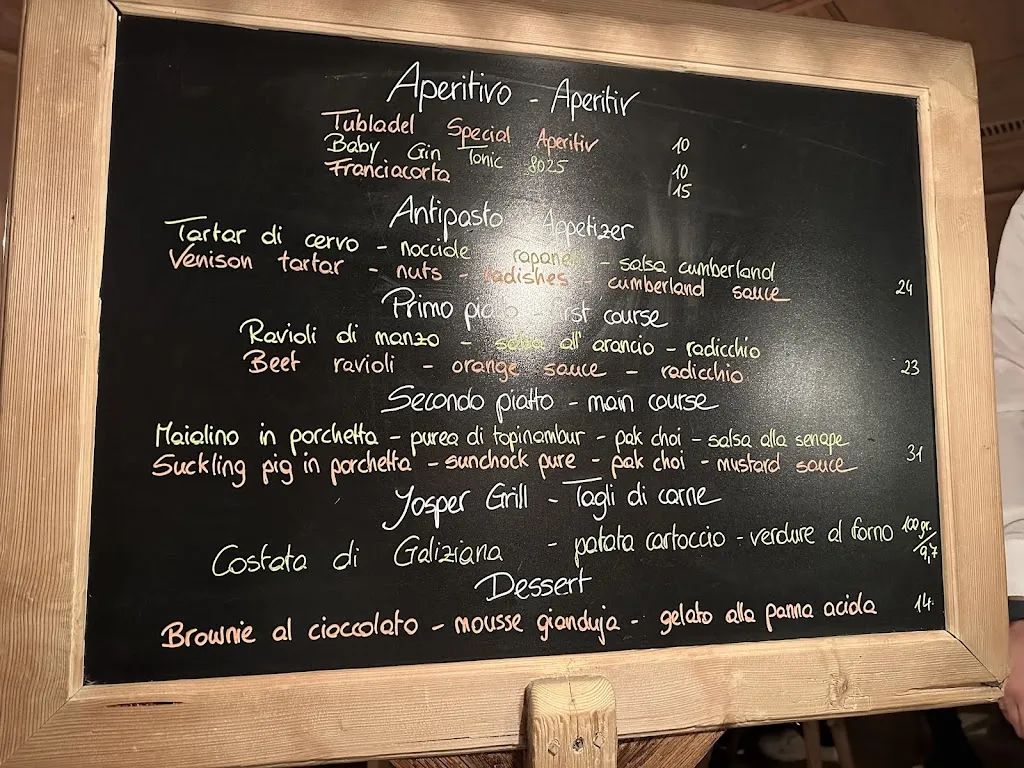 Aperitivo - Aperitiv
Tubladel Special Aperitiv 10
Baby Gin Tonic 8025 10
Franciacorta 15
Antipasto Appetizer
Tartar di cervo - nocciole - salsa cumberland
Venison tartar - nuts - radishes - cumberland sauce 24
Primo piatto - first course
Ravioli di manzo - salsa all' arancio - radicchio
Beef ravioli - orange sauce - radicchio 23
Secondo piatto - main course
Maialino in porchetta - purea di topinambur - pak choi - salsa alla senape
Suckling pig in porchetta - sunchock pure - pak choi - mustard sauce 31
Yosper Grill - Tagli di carne
Costata di Galiziana - patata cartoccio - verdure al forno 100gr./9,7
Dessert
Brownie al cioccolato - mousse gianduja - gelato alla panna acida 14.